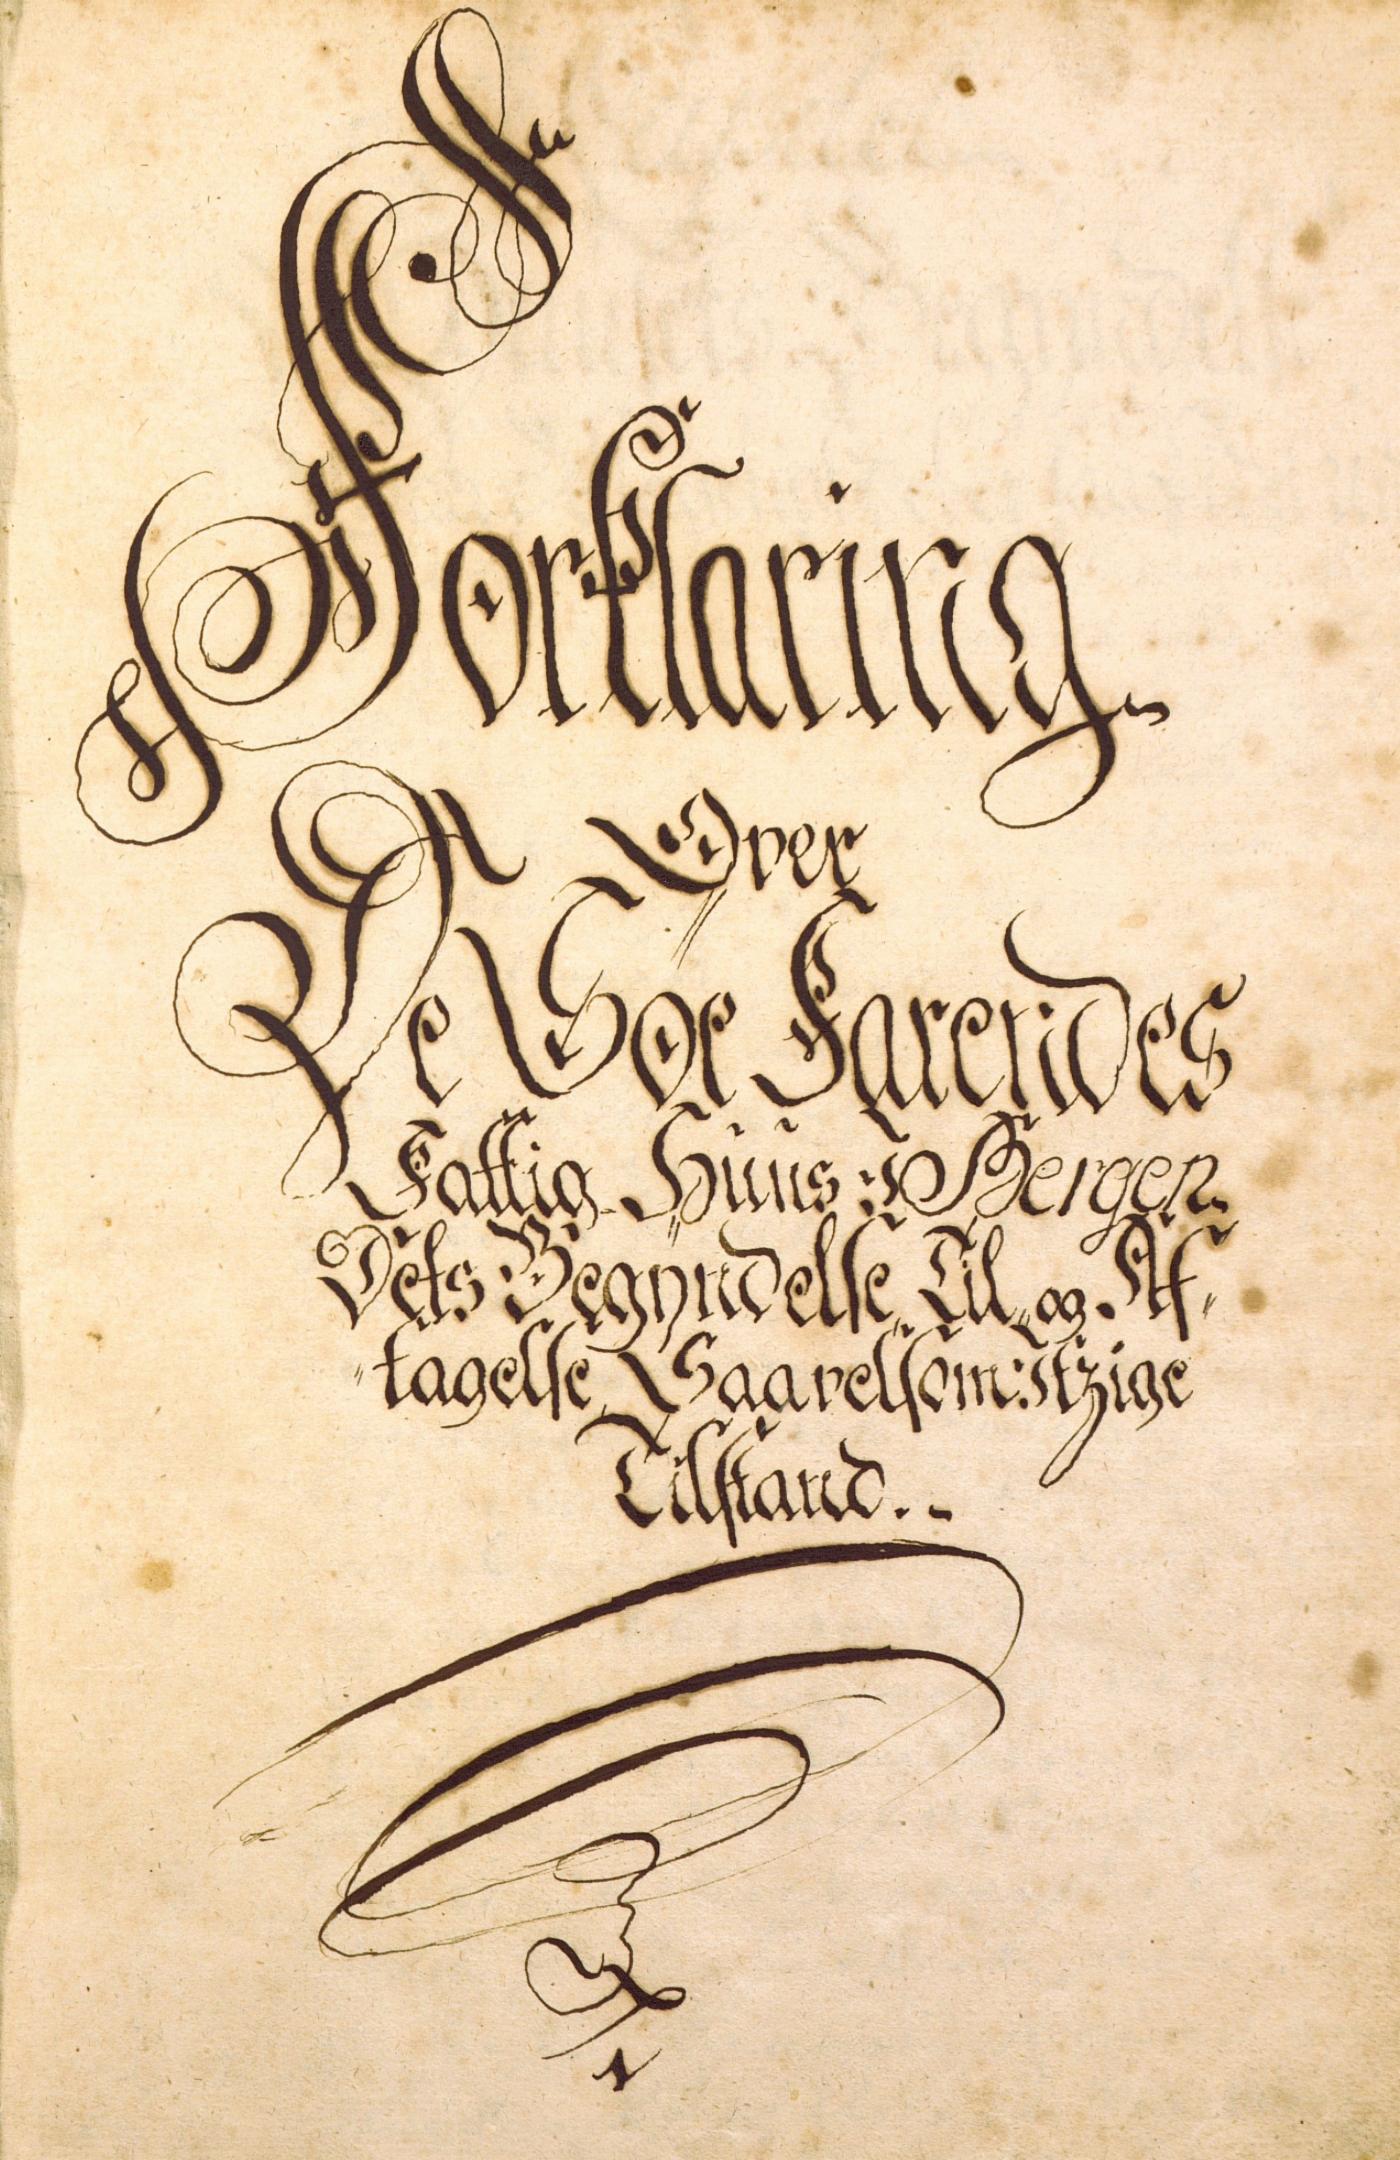 Forklaring
Over
De Søe Farendes
Fattig Huus i Bergen
Dets Begyndelse, Til og Af-
tagelse, Saavelsom: Itzige
Tilstand..